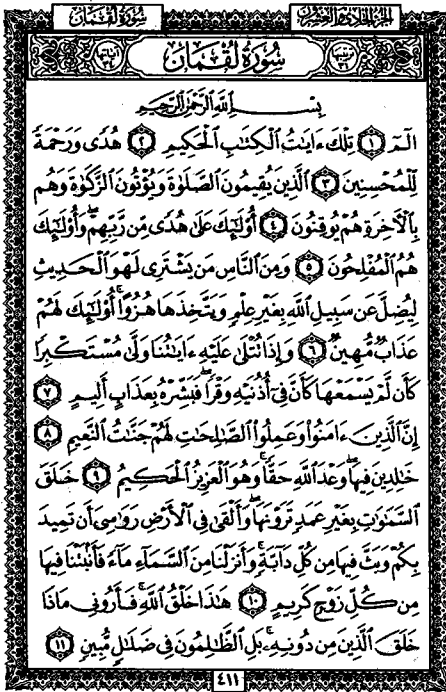 سُورَةُ لُقْمَانَ
الجُزْءُ الحَادِى وَالْعِشْرُونَ
سُورَةُ لُقْمَانَ
بِسْمِ ٱللَّهِ ٱلرَّحْمَٰنِ ٱلرَّحِيمِ
الٓمٓ ١ تِلْكَ ءَايَٰتُ ٱلْكِتَٰبِ ٱلْحَكِيمِ ٢ هُدًى وَرَحْمَةً
لِّلْمُحْسِنِينَ ٣ ٱلَّذِينَ يُقِيمُونَ ٱلصَّلَوٰةَ وَيُؤْتُونَ ٱلزَّكَوٰةَ وَهُم
بِٱلْءَاخِرَةِ هُمْ يُوقِنُونَ ٤ أُو۟لَٰٓئِكَ عَلَىٰ هُدًى مِّن رَّبِّهِمْ ۖ وَأُو۟لَٰٓئِكَ
هُمُ ٱلْمُفْلِحُونَ ٥ وَمِنَ ٱلنَّاسِ مَن يَشْتَرِى لَهْوَ ٱلْحَدِيثِ
لِيُضِلَّ عَن سَبِيلِ ٱللَّهِ بِغَيْرِ عِلْمٍ وَيَتَّخِذَهَا هُزُوًا ۚ أُو۟لَٰٓئِكَ لَهُمْ
عَذَابٌ مُّهِينٌ ٦ وَإِذَا تُتْلَىٰ عَلَيْهِ ءَايَٰتُنَا وَلَّىٰ مُسْتَكْبِرًا
كَأَن لَّمْ يَسْمَعْهَا كَأَنَّ فِىٓ أُذُنَيْهِ وَقْرًا ۖ فَبَشِّرْهُ بِعَذَابٍ أَلِيمٍ ٧
إِنَّ ٱلَّذِينَ ءَامَنُوا۟ وَعَمِلُوا۟ ٱلصَّٰلِحَٰتِ لَهُمْ جَنَّٰتُ ٱلنَّعِيمِ ٨
خَٰلِدِينَ فِيهَا ۖ وَعْدَ ٱللَّهِ حَقًّا ۚ وَهُوَ ٱلْعَزِيزُ ٱلْحَكِيمُ ٩ خَلَقَ
ٱلسَّمَٰوَٰتِ بِغَيْرِ عَمَدٍ تَرَوْنَهَا ۖ وَأَلْقَىٰ فِى ٱلْأَرْضِ رَوَٰسِىَ أَن تَمِيدَ
بِكُمْ وَبَثَّ فِيهَا مِن كُلِّ دَآبَّةٍ ۚ وَأَنزَلْنَا مِنَ ٱلسَّمَآءِ مَآءً فَأَنۢبَتْنَا فِيهَا
مِن كُلِّ زَوْجٍ كَرِيمٍ ١٠ هَٰذَا خَلْقُ ٱللَّهِ فَأَرُونِى مَاذَا
خَلَقَ ٱلَّذِينَ مِن دُونِهِۦ ۚ بَلِ ٱلظَّٰلِمُونَ فِى ضَلَٰلٍ مُّبِينٍ ١١
٤١١